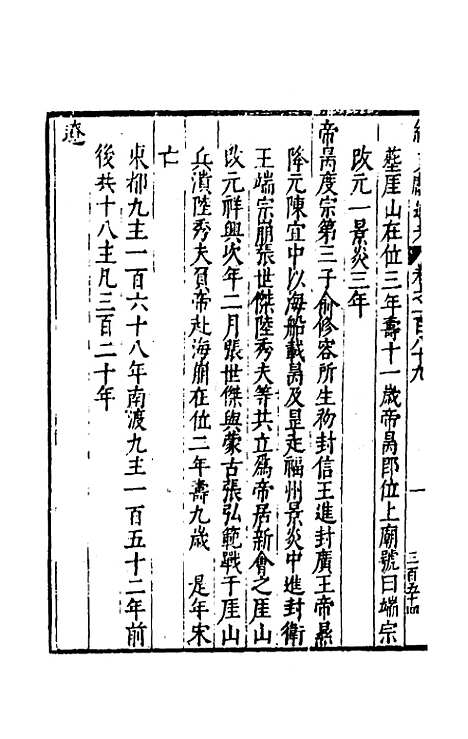 卷之一百八十九
一
三百五十四
葬厓山在位三年壽十一歲帝昺即位上廟號曰端宗
改元一景炎三年
帝昺度宗第三子俞修容所生初封信王進封廣王帝㬎
降元陳宜中以海船載昺及昰走福州景炎中進封衛
王端宗崩張世傑陸秀夫等共立爲帝居新會之厓山
改元祥興次年二月張世傑與蒙古張弘範戰于厓山
兵潰陸秀夫負帝赴海崩在位二年壽九歲 是年宋
亡
東都九主一百六十八年南渡九主一百五十二年前
後共十八主凡三百二十年
遼